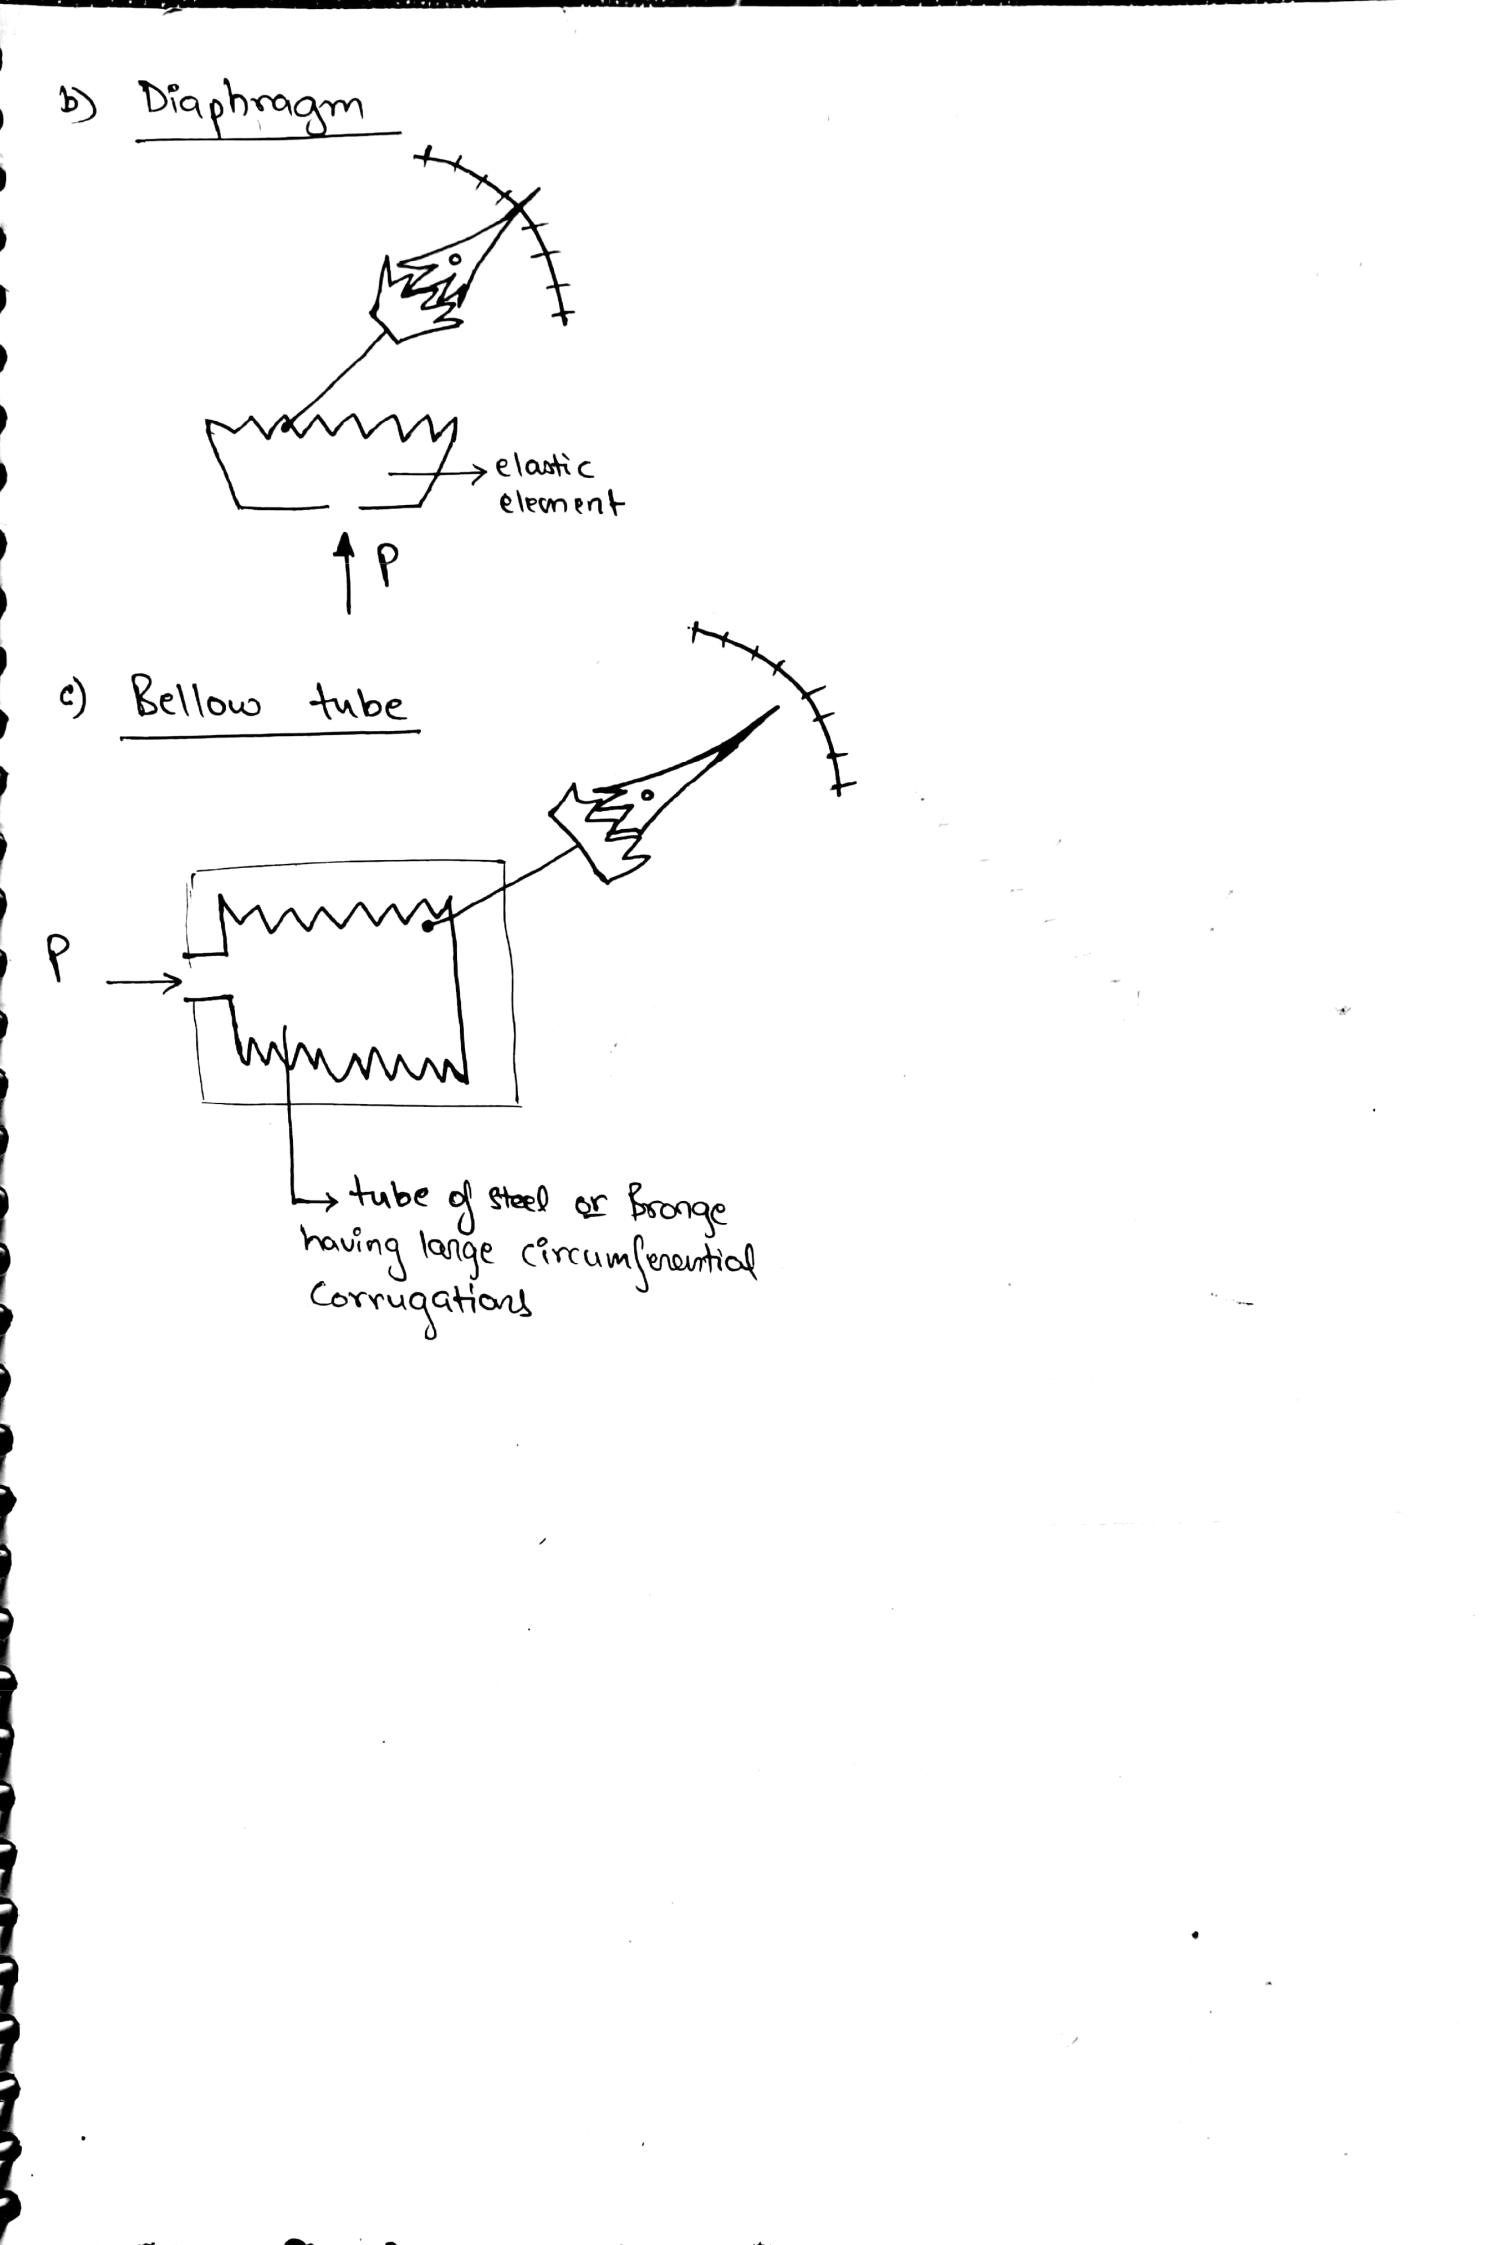 b) Diaphragm
elastic
element
P
c) Bellow tube
P
tube of steel or Bronge
having large circumferential
corrugations